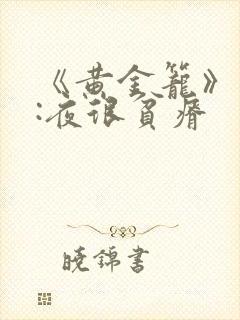 《黄金籠》
:夜很貧瘠
晓錦書